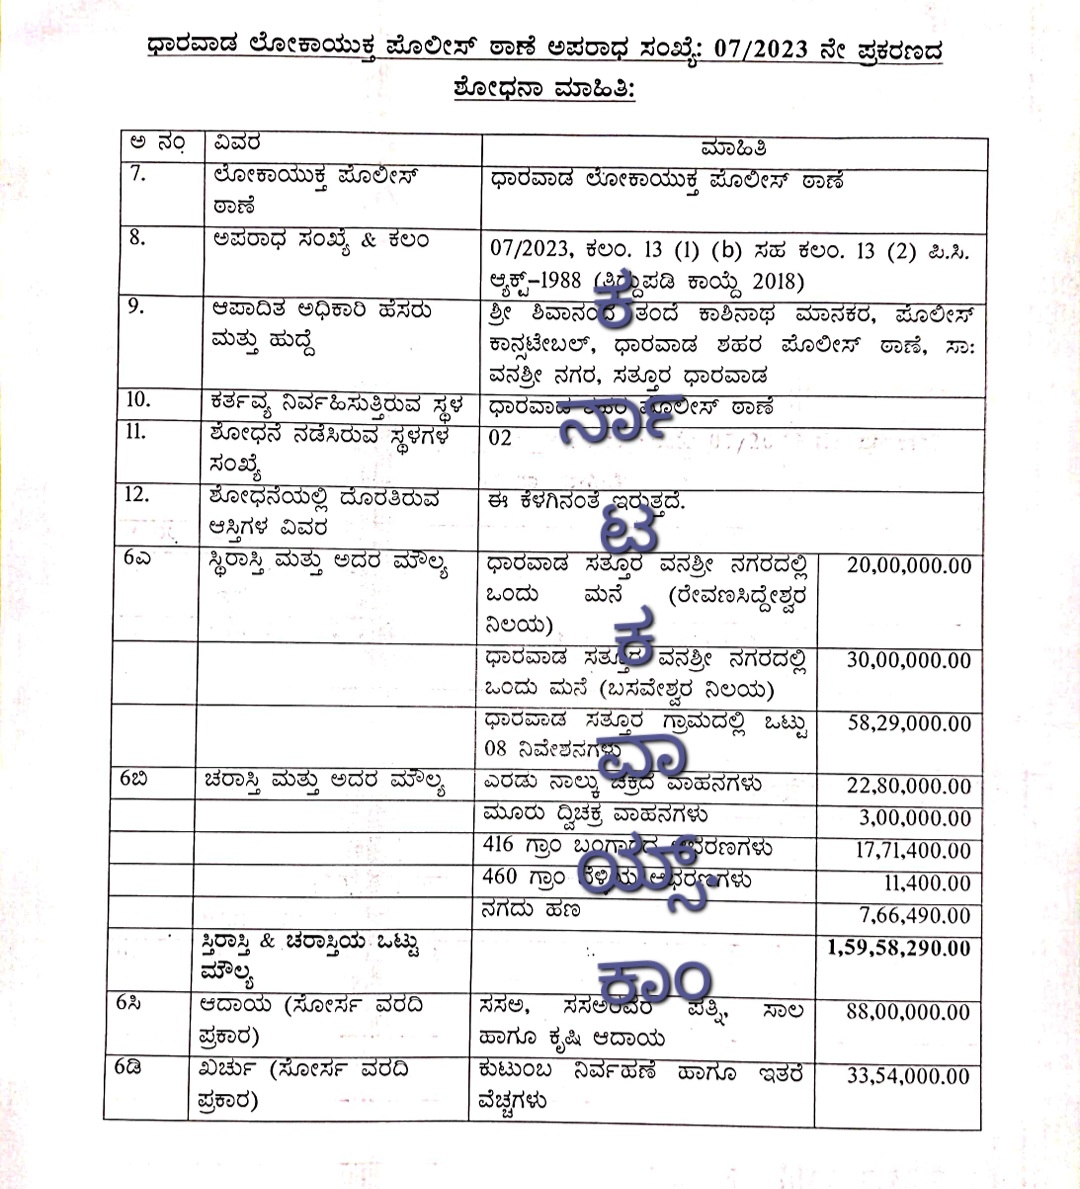 ಧಾರವಾಡ ಲೋಕಾಯುಕ್ತ ಪೊಲೀಸ್ ಠಾಣೆ ಅಪರಾಧ ಸಂಖ್ಯೆ: 07/2023 ನೇ ಪ್ರಕರಣದ
ಶೋಧನಾ ಮಾಹಿತಿ:
ಅ ನಂ. ವಿವರ ಮಾಹಿತಿ
7. ಲೋಕಾಯುಕ್ತ ಪೊಲೀಸ್ ಧಾರವಾಡ ಲೋಕಾಯುಕ್ತ ಪೊಲೀಸ್ ಠಾಣೆ
ಠಾಣೆ
8. ಅಪರಾಧ ಸಂಖ್ಯೆ & ಕಲಂ 07/2023, ಕಲಂ. 13 (1) (b) ಸಹ ಕಲಂ. 13 (2) ಪಿ.ಸಿ.
ಆ್ಯಕ್ಟ್-1988 (ತಿದ್ದುಪಡಿ ಕಾಯ್ದೆ 2018)
9. ಆಪಾದಿತ ಅಧಿಕಾರಿ ಹೆಸರು ಶ್ರೀ ಶಿವಾನಂದ ತಂದೆ ಕಾಶಿನಾಥ ಮಾನಕರ, ಪೊಲೀಸ್
ಮತ್ತು ಹುದ್ದೆ ಕಾನ್ಸಟೇಬಲ್, ಧಾರವಾಡ ಶಹರ ಪೊಲೀಸ್ ಠಾಣೆ, ಸಾ:
ವನಶ್ರೀ ನಗರ, ಸತ್ತೂರ ಧಾರವಾಡ
10. ಕರ್ತವ್ಯ ನಿರ್ವಹಿಸುತ್ತಿರುವ ಸ್ಥಳ ಧಾರವಾಡ ಶಹರ ಪೊಲೀಸ್ ಠಾಣೆ
11. ಶೋಧನೆ ನಡೆಸಿರುವ ಸ್ಥಳಗಳ 02
ಸಂಖ್ಯೆ
12. ಶೋಧನೆಯಲ್ಲಿ ದೊರತಿರುವ ಈ ಕೆಳಗಿನಂತೆ ಇರುತ್ತದೆ.
ಆಸ್ತಿಗಳ ವಿವರ
6ಎ ಸ್ಥಿರಾಸ್ತಿ ಮತ್ತು ಅದರ ಮೌಲ್ಯ ಧಾರವಾಡ ಸತ್ತೂರ ವನಶ್ರೀ ನಗರದಲ್ಲಿ 20,00,000.00
ಒಂದು ಮನೆ (ರೇವಣಸಿದ್ದೇಶ್ವರ
ನಿಲಯ)
ಧಾರವಾಡ ಸತ್ತೂರ ವನಶ್ರೀ ನಗರದಲ್ಲಿ 30,00,000.00
ಒಂದು ಮನೆ (ಬಸವೇಶ್ವರ ನಿಲಯ)
ಧಾರವಾಡ ಸತ್ತೂರ ಗ್ರಾಮದಲ್ಲಿ ಒಟ್ಟು 58,29,000.00
08 ನಿವೇಶನಗಳು
6ಬಿ ಚರಾಸ್ತಿ ಮತ್ತು ಅದರ ಮೌಲ್ಯ ಎರಡು ನಾಲ್ಕು ಚಕ್ರದ ವಾಹನಗಳು 22,80,000.00
ಮೂರು ದ್ವಿಚಕ್ರ ವಾಹನಗಳು 3,00,000.00
416 ಗ್ರಾಂ ಬಂಗಾರದ ಆಭರಣಗಳು 17,71,400.00
460 ಗ್ರಾಂ ಬೆಳ್ಳಿಯ ಆಭರಣಗಳು 11,400.00
ನಗದು ಹಣ 7,66,490.00
ಸ್ತಿರಾಸ್ತಿ & ಚರಾಸ್ತಿಯ ಒಟ್ಟು 1,59,58,290.00
ಮೌಲ್ಯ
6ಸಿ ಆದಾಯ (ಸೋರ್ಸ ವರದಿ ಸಸಅ, ಸಸಅರವರ ಪತ್ನಿ, ಸಾಲ 88,00,000.00
ಪ್ರಕಾರ) ಹಾಗೂ ಕೃಷಿ ಆದಾಯ
6ಡಿ ಖರ್ಚು (ಸೋರ್ಸ ವರದಿ ಕುಟುಂಬ ನಿರ್ವಹಣೆ ಹಾಗೂ ಇತರೆ 33,54,000.00
ಪ್ರಕಾರ) ವೆಚ್ಚಗಳು
ಕ
ರ್ನಾ
ಟ
ಕ
ವಾ
ಯ್ಸ್.
ಕಾಂ